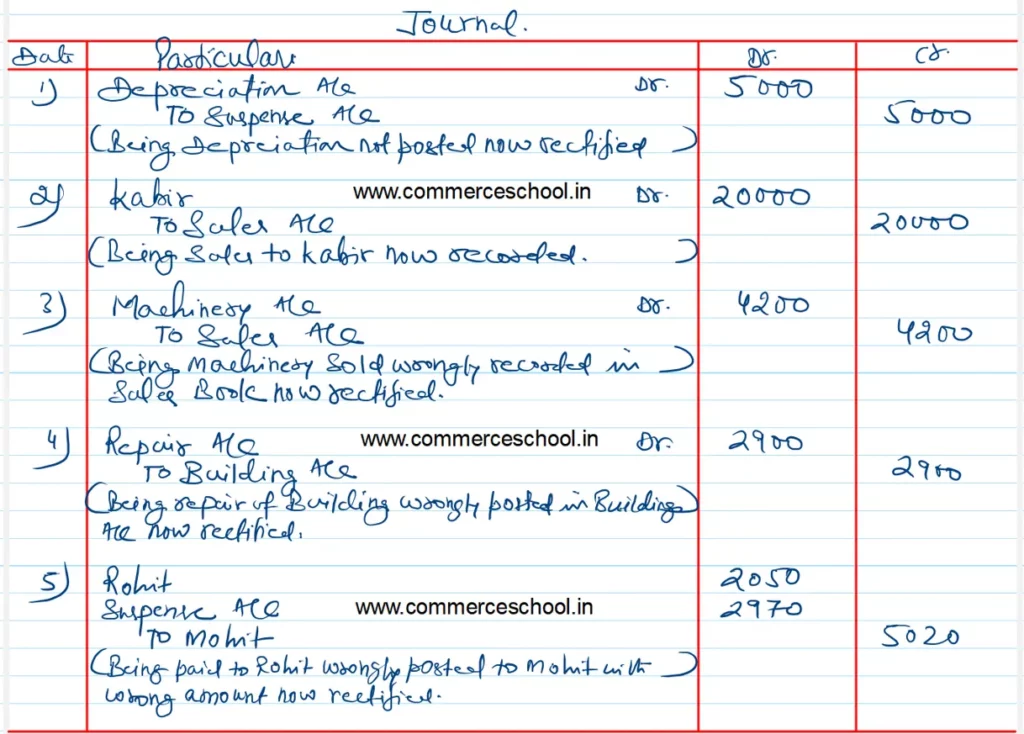 Journal.
Date Particulars Dr. Cr.
1) Depreciation A/c Dr. 5000
To Suspense A/c 5000
(Being Depreciation not posted now rectified)
2) Kabir www.commerceschool.in Dr. 20000
To Sales A/c 20000
(Being Sales to Kabir now recorded.)
3) Machinery A/c Dr. 4200
To Sales A/c 4200
(Being Machinery Sold wrongly recorded in)
Sales Book now rectified.
4) Repair A/c www.commerceschool.in Dr. 2900
To Building A/c 2900
(Being repair of Building wrongly posted in Building)
A/c now rectified.
5) Rohit 2050
Suspense A/c www.commerceschool.in 2970
To Mohit 5020
(Being paid to Rohit wrongly posted to Mohit with)
wrong amount now rectified.